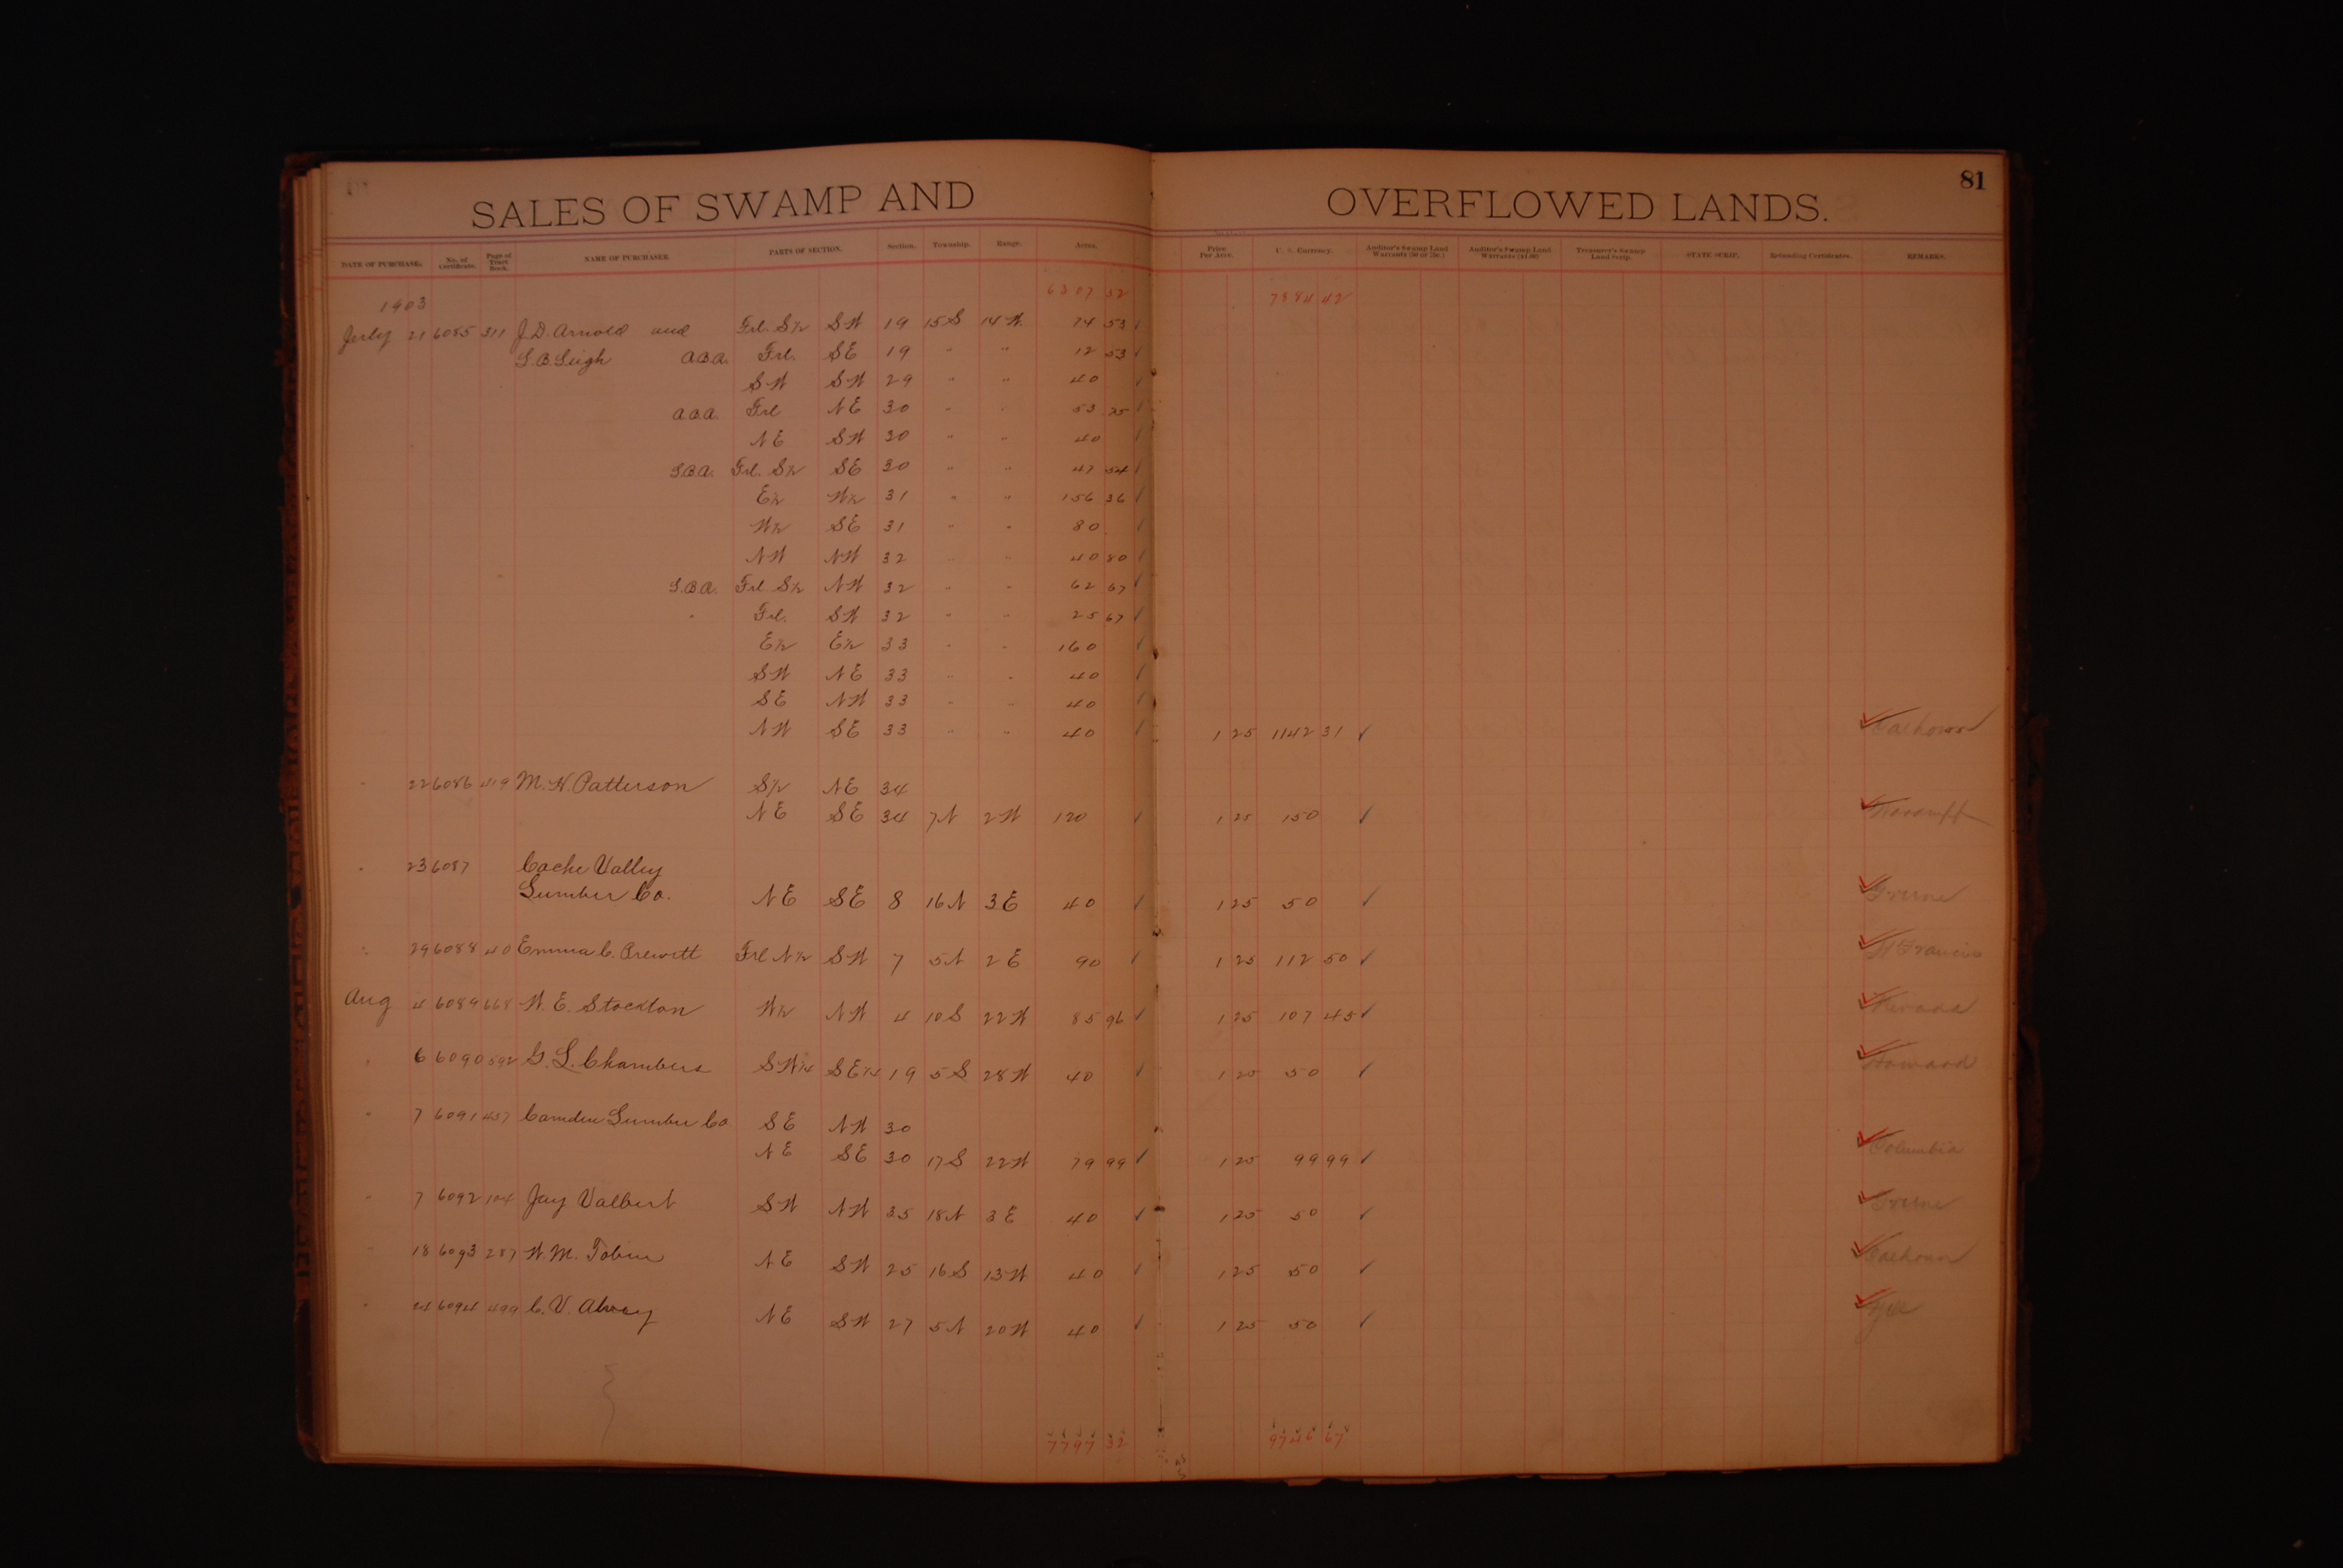 81
SALES OF SWAMP AND OVERFLOWED LANDS.
DATE OF PURCHASE. No. of Certificate. Page of Tract Book. NAME OF PURCHASER. PARTS OF SECTION. Section. Township. Range. Acres. Price Per Acre. U. S. Currency. Auditor's Swamp Land Warrants (50 or 75c.) Auditor's Swamp Land Warrants ($1.00) Treasurer's Swamp Land Scrip. STATE SCRIP. Refunding Certificates. REMARKS.
6307 32 7884 42
1903
July 21 6085 311 J.D. Arnold and Frl. S½ SW 19 15S 14W. 74 53 ✓
L.B. Leigh A.B.A. Frl. SE 19 " " 12 53 ✓
SW SW 29 " " 40 ✓
A.B.A. Frl NE 30 " " 53 25 ✓
NE SW 30 " " 40 ✓
S.B.A. Frl. S½ SE 30 " " 47 54 ✓
E½ W½ 31 " " 156 36 ✓
W½ SE 31 " " 80 ✓
NW NW 32 " " 40 80 ✓
S.B.A. Frl. S½ NW 32 " " 62 67 ✓
" Frl. SW 32 " " 25 67 ✓
E½ E½ 33 " " 160 ✓
SW NE 33 " " 40 ✓
SE NW 33 " " 40 ✓
NW SE 33 " " 40 ✓ 1 25 1142 31 ✓ Calhoun
" 22 6086 419 M. H. Patterson S½ NE 34
NE SE 34 7N 2W 120 ✓ 1 25 150 ✓ Woodruff
" 23 6087 Cache Valley
Lumber Co. NE SE 8 16N 3E 40 ✓ 1 25 50 ✓ Greene
" 29 6088 40 Emma C. Prewitt Frl N½ SW 7 5N 2E 90 ✓ 1 25 112 50 ✓ St Francis
Aug 4 6089 668 W. E. Stockton W½ NW 4 10S 22W 85 96 ✓ 1 25 107 45 ✓ Nevada
" 6 6090 592 G. L. Chambers SW¼ SE¼ 19 5S 28W 40 ✓ 1 25 50 ✓ Howard
" 7 6091 457 Camden Lumber Co SE NW 30
NE SE 30 17S 22W 79 99 ✓ 1 25 99 99 ✓ Columbia
" 7 6092 104 Jay Valbert SW NW 35 18N 3E 40 ✓ 1 25 50 ✓ Greene
" 18 6093 287 W. M. Tobin NE SW 25 16S 13W 40 ✓ 1 25 50 ✓ Calhoun
" 24 6094 499 C. V. Alvey NE SW 27 5N 20W 40 ✓ 1 25 50 ✓
7797 32 9746 67